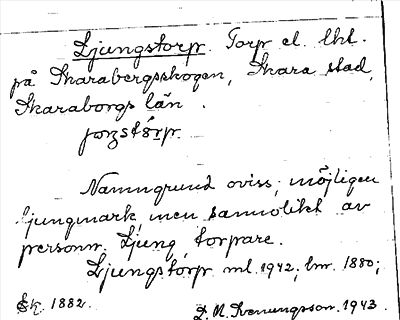 Ljungstorp. Torp el. lht.
på Skarabergsskogen, Skara stad,
Skaraborgs län.
joŋstórp.
Namngrund oviss, möjligen
ljungmark, men sannolikt av
personn. Ljung, torpare.
Ljungstorp ml. 1942; lmr. 1880;
Ek. 1882.
D. N. Svenungsson. 1943.